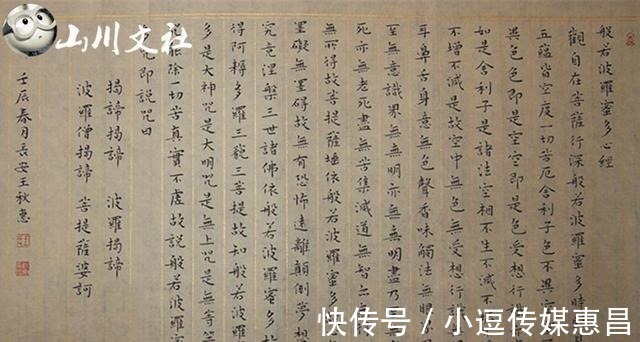 山川文社
般若波羅蜜多心經
觀自在菩薩行深般若波羅蜜多時
五蘊皆空度一切苦厄舍利子色不異
異色色即是空空即是色受想行
如是舍利子是諸法空相不生不滅不
不增不減是故空中無色無受想行
耳鼻舌身意無色聲香味觸法無
至無意識界無無明亦無無明盡乃
死亦無老死盡無苦集滅道無智
無所得故菩提薩埵依般若波羅蜜多
罣礙無罣礙故無有恐怖遠離顛倒夢想
究竟涅槃三世諸佛依般若波羅蜜多故
得阿耨多羅三藐三菩提故知般若波羅
多是大神咒是大明咒是無上咒是無等
能除一切苦真實不虛故說般若波羅
咒即說咒曰
揭諦揭諦 波羅揭諦
波羅僧揭諦 菩提薩婆訶
壬辰春月長安王秋惠
快传号/小逗传媒惠昌